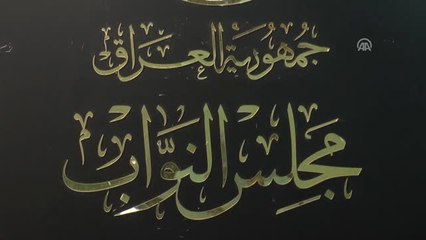 جمهورية العراق
مجلس النوّاب
AA